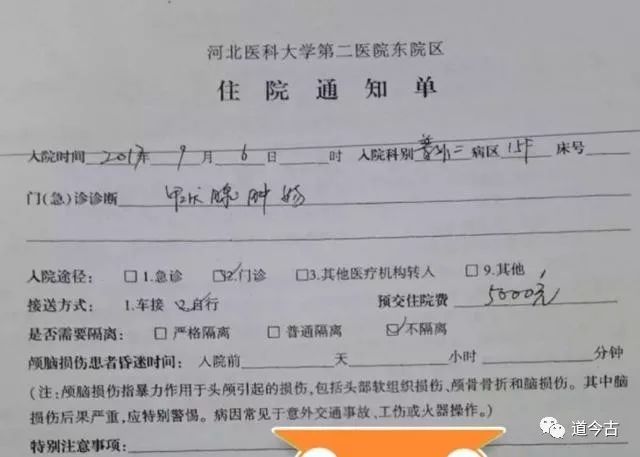 河北医科大学第二医院东院区
住院通知单
入院时间 2017年 9月 6日 时 入院科别 普外二 病区 15F 床号
门(急)诊诊断 甲状腺肿物
入院途径: □1.急诊 ☑2.门诊 □3.其他医疗机构转入 □9.其他
接送方式: 1.车接 2.自行 预交住院费 5000元
是否需要隔离: □ 严格隔离 □ 普通隔离 ☑不隔离
颅脑损伤患者昏迷时间: 入院前 天 小时 分钟
(注:颅脑损伤指暴力作用于头颅引起的损伤,包括头部软组织损伤、颅骨骨折和脑损伤。其中脑
损伤后果严重,应特别警惕。病因常见于意外交通事故、工伤或火器操作。)
特别注意事项:
道今古